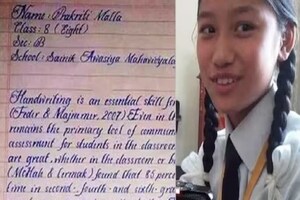 Name: Prakriti Malla
Class: 8 (Eight)
Sec: B
School: Sainik Awasiya Mahavidyala
Handwriting is an essential skill for
(Feder & Majnemer, 2007) Even in
remains the primary tool of commun
assessment for students in the classroom
are great, whether in the classroom or
found that 85 perc
time in second-, fourth- and sixth-gra